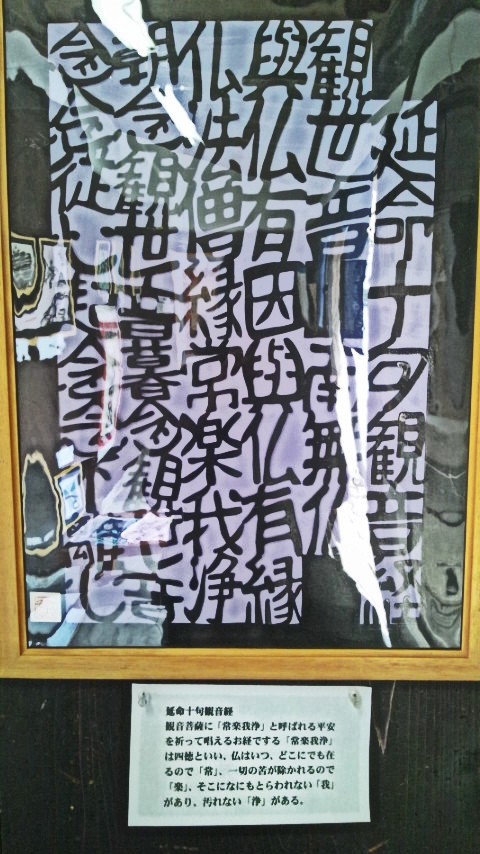 延命十句観音経
観世音南無仏
與仏有因與仏有縁
仏法僧縁常楽我浄
朝念観世音暮念観世音
念々従心起念々不離心
延命十句観音経
観音菩薩に「常楽我浄」と呼ばれる平安
を祈って唱えるお経でする「常楽我浄」
は四徳といい、仏はいつ、どこにでも在
るので「常」、一切の苦が除かれるので
「楽」、そこになにもとらわれない「我」
があり、汚れない「浄」がある。